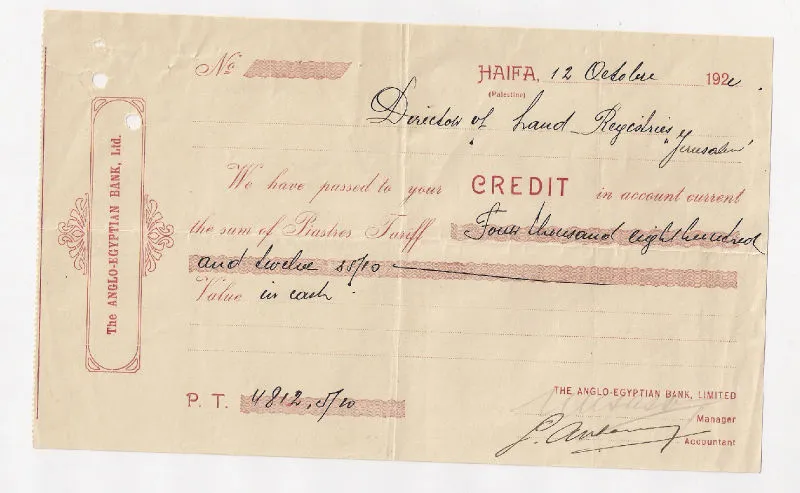 No
HAIFA, 12 Octobre 192
(Palestine)
Director of Land Registries
"Jerusalem"
We have passed to your CREDIT in account current
the sum of Piastres Tariff Four thousand eight hundred
and twelve 5/10
Value in cash.
P. T. 4812,5/10
THE ANGLO-EGYPTIAN BANK, LIMITED
Manager
Accountant
The ANGLO-EGYPTIAN BANK, Ltd.